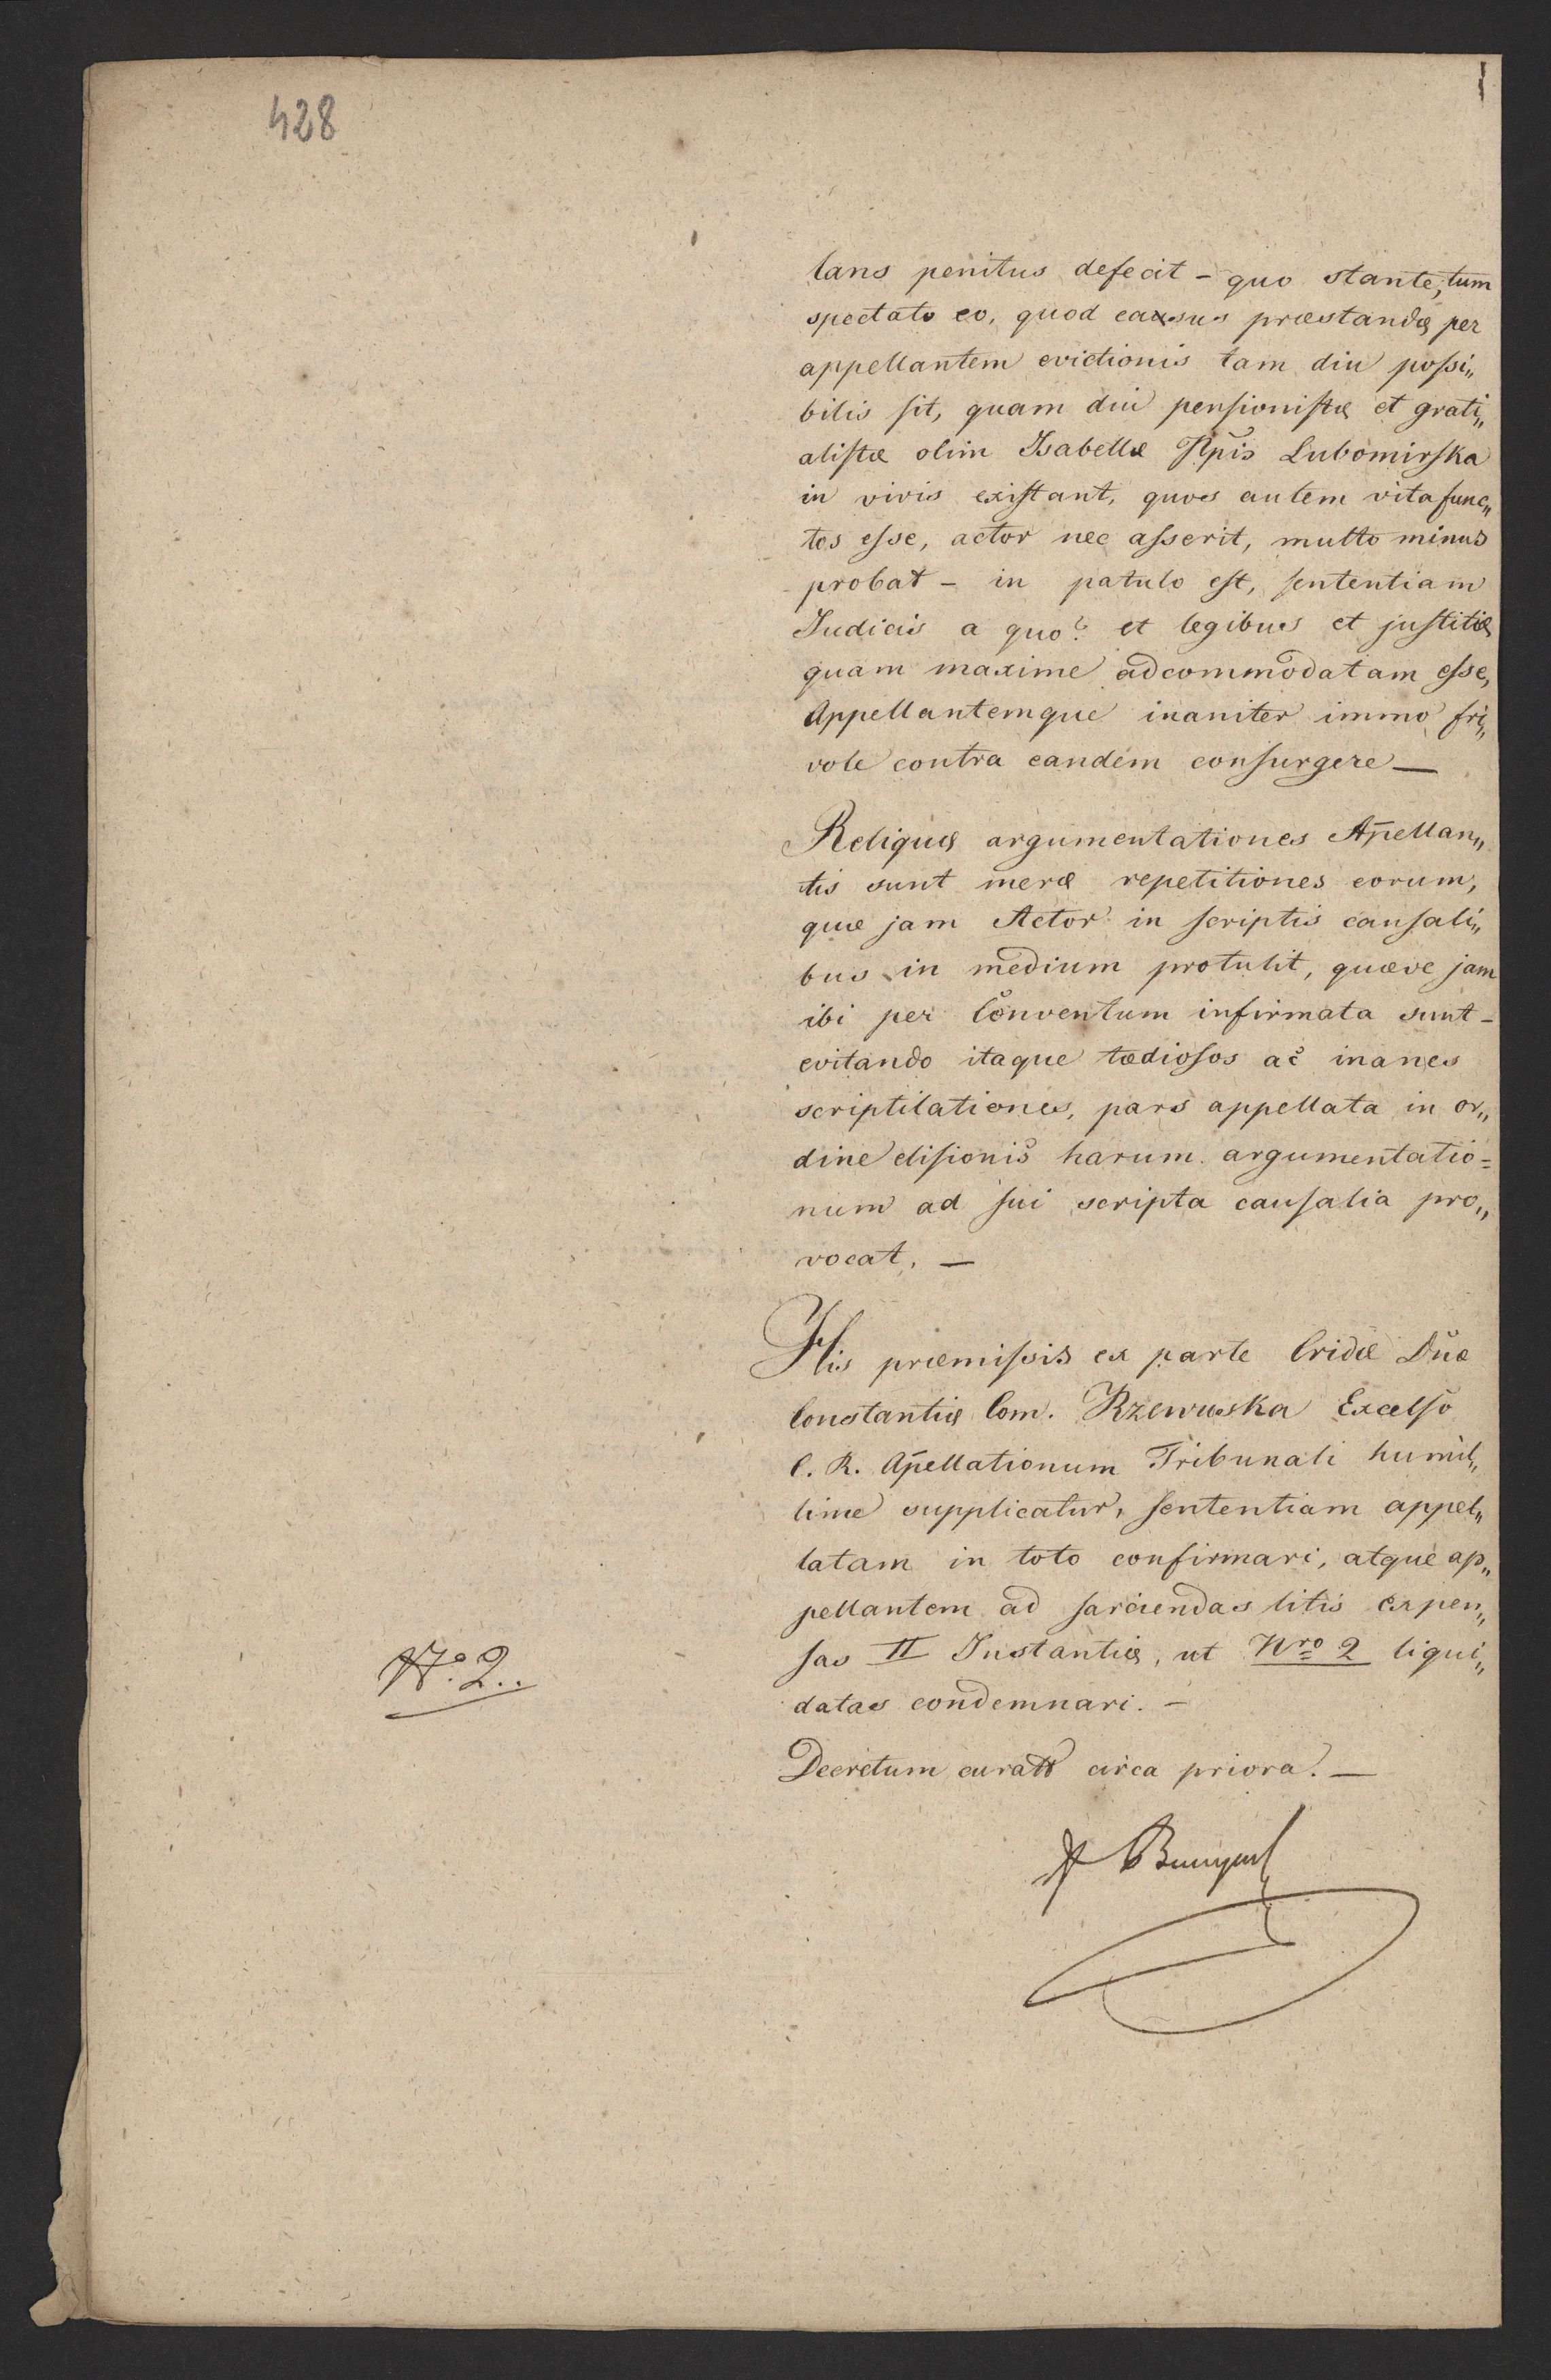 428
lans penitus defecit - quo stante, tum
spectato eo, quod casus præstandæ per
appellantem evictionis tam diu poſsi„
bilis ſit, quam diu penſioniſtæ et grati„
aliſtæ olim Isabellæ Ppis Lubomirſka
in vivis exiſtant, quos autem vita func„
tos eſse, actor nec aſserit, multo minus
probat - in patulo eſt, ſententiam
Judicis a quo? et legibus et juſtitiæ
quam maxime adcommodatam eſse,
Appellantemque inaniter immo fri„
vole contra eandem conſurgere —
Reliquæ argumentationes Apellan„
tis sunt meræ repetitiones eorum,
quæ jam Actor in ſcriptis cauſali„
bus in medium protulit, quæve jam
ibi per Conventum infirmata sunt -
evitando itaque tædioſos ac inanes
scriptilationes, pars appellata in or„
dine eliſionis harum argumentatio=
num ad ſui scripta cauſalia pro„
vocat. —
His præmiſsis ex parte Cridæ Duæ
Constantiæ Com. Rzewuska Excelſo
C. R. Apellationum Tribunali humil„
lime supplicatur, ſententiam appel„
latam in toto confirmari, atque ap„
pellantem ad ſarciendas litis expen„
ſas II Instantiæ, ut Nro 2 liqui„
datas condemnari. -
No. 2..
Decretum curat circa priora. —